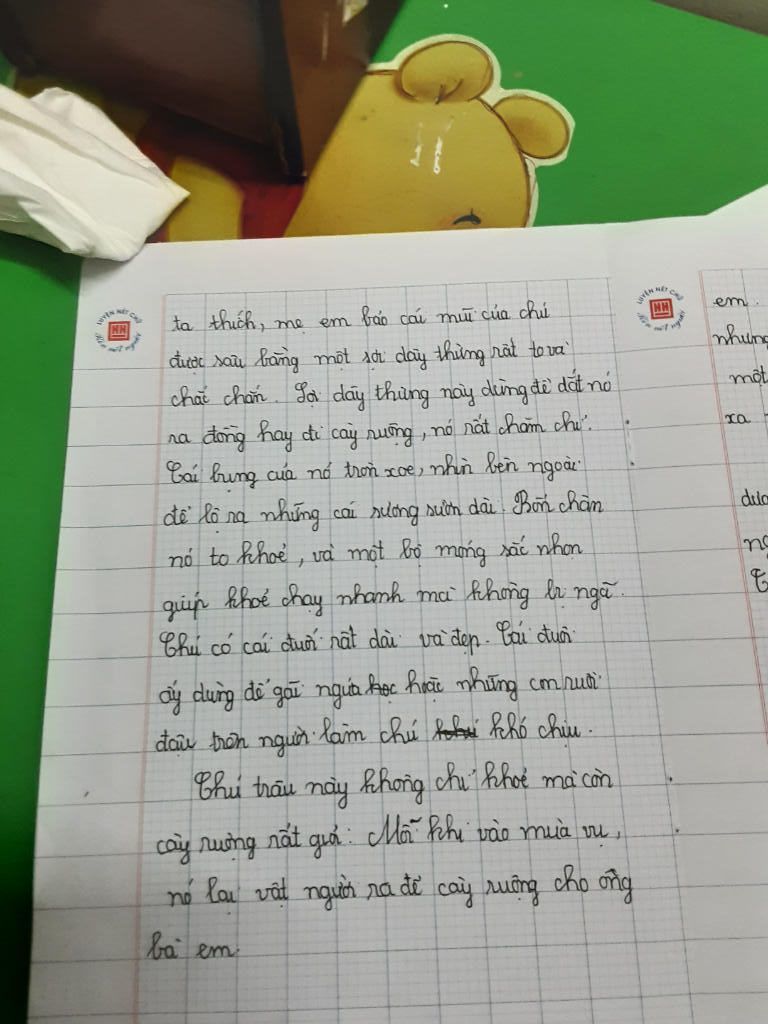 LUYỆN NÉT CHỮ
HH
LUYỆN NÉT CHỮ
HH
ta thích, mẹ em bảo cái mũi của chú
được sâu bằng một sợi dây thừng rất to và
chắc chắn. Sợi dây thừng này dùng để dắt nó
ra đồng hay đi cày ruộng, nó rất chăm chỉ.
Cái bụng của nó tròn xoe, nhìn bên ngoài
để lộ ra những cái xương sườn dài. Bốn chân
nó to khoẻ, và một bộ móng sắc nhọn
giúp khoẻ chạy nhanh mà không bị ngã.
Chú có cái đuôi rất dài và đẹp. Cái đuôi
ấy dùng để gãi ngứa hoặc những con ruồi
đậu trên người làm chú khó chịu.
Chú trâu này không chỉ khoẻ mà còn
cày ruộng rất giỏi. Mỗi khi vào mùa vụ,
nó lại vật người ra để cày ruộng cho ông
bà em.
em.
nhưng
một
xa